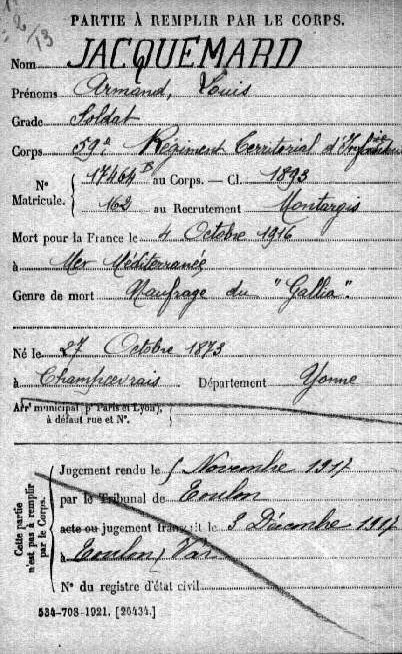 PARTIE À REMPLIR PAR LE CORPS.
Nom JACQUEMARD
Prénoms Armand, Louis
Grade Soldat
Corps 59e Régiment Territorial d'Infanterie
N° Matricule. { 17464 au Corps. — Cl. 1893
162 au Recrutement Montargis
Mort pour la France le 4 Octobre 1916
à Mer Méditerranée
Genre de mort Naufrage du "Gallia".
Né le 27 Octobre 1873
à Champcevrais Département Yonne
Arrt municipal (pr Paris et Lyon),
à défaut rue et N°.
Cette partie n'est pas à remplir par le Corps.
Jugement rendu le 5 Novembre 1917
par le Tribunal de Toulon
acte ou jugement transcrit le 3 Décembre 1917
à Toulon, Var
N° du registre d'état civil
534-708-1921. [26434.]